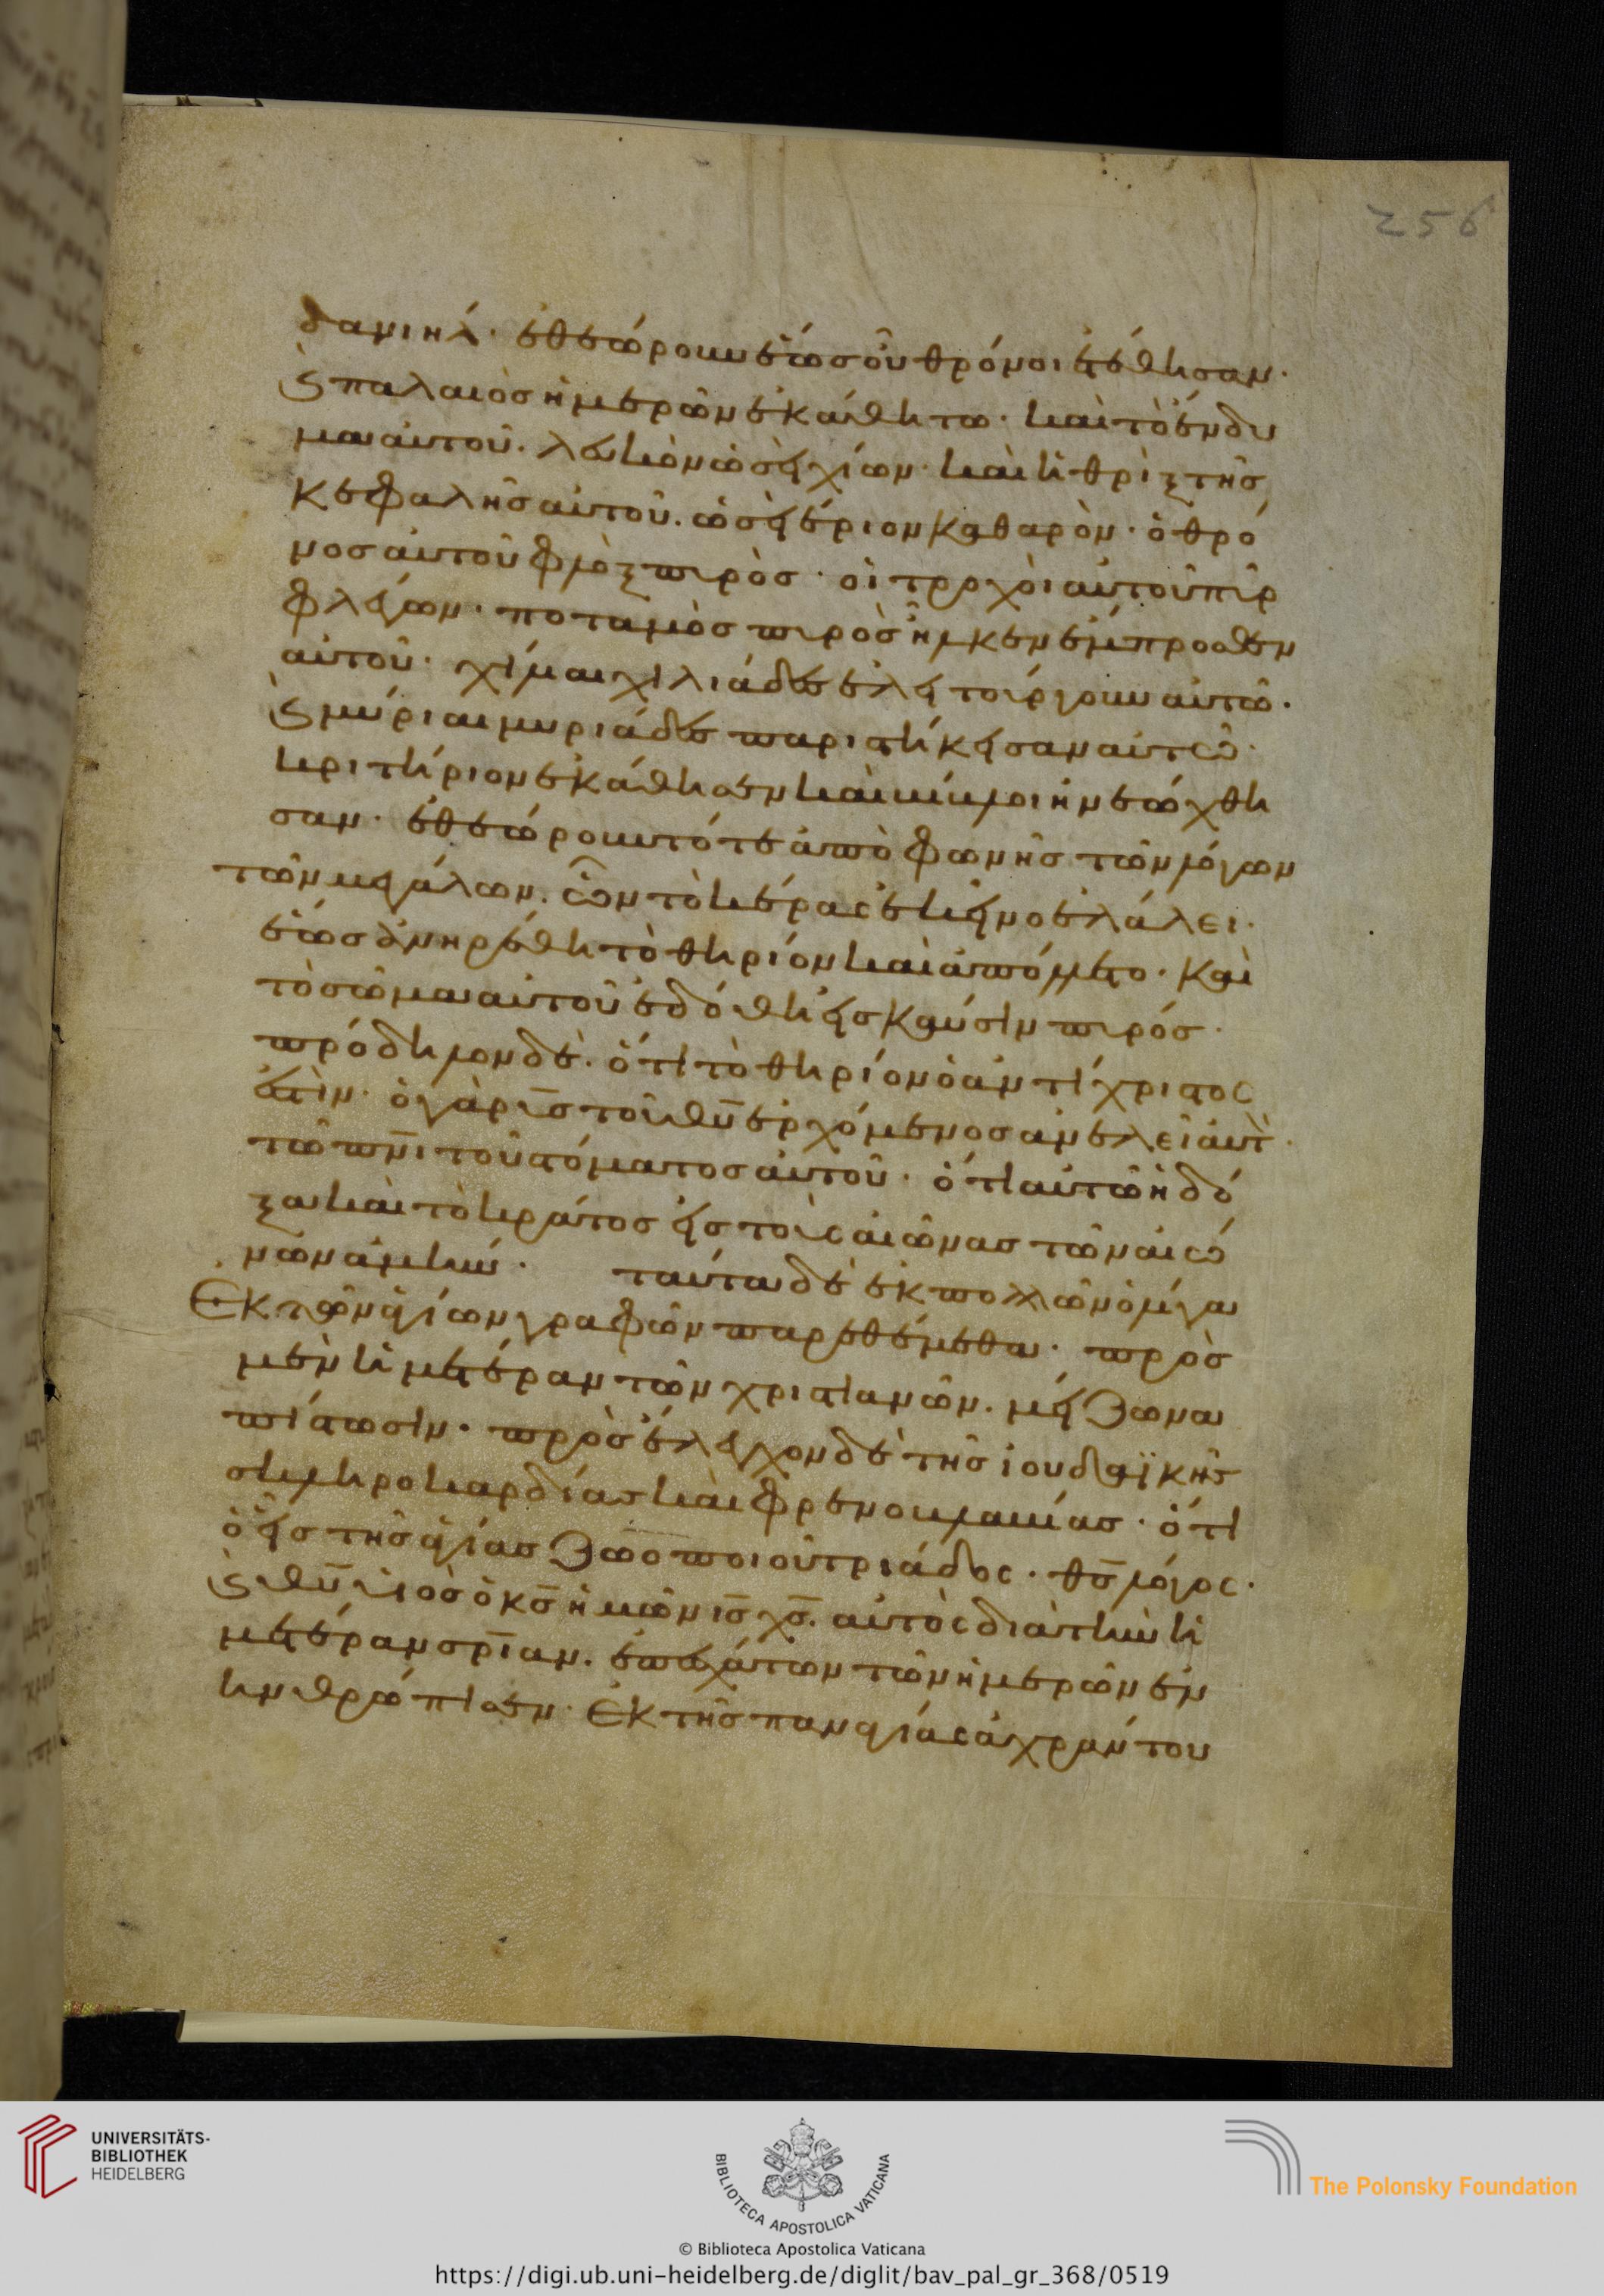 256
δανιήλ· ἐθεώρουν ἕως οὗ θρόνοι ἐτέθησαν·
ϛ παλαιὸς ἡμερῶν ἐκάθητο· καὶ τὸ ἔνδυ
μα αὐτοῦ. λευκὸν ὡσεὶ χίων· καὶ ἡ θρὶξ τῆς
κεφαλῆς αὐτοῦ. ὡσεὶ ἔριον καθαρὸν· ὁ θρό
νος αὐτοῦ φλὸξ πυρὸς· οἱ τροχοὶ αὐτοῦ πῦρ
φλέγων· ποταμὸς πυρὸς ἧλκεν ἔμπροσθεν
αὐτοῦ· χίλιαι χιλιάδες ἐλειτούργουν αὐτῶ·
ϛ μύριαι μυριάδες παριστήκεισαν αὐτῶ·
κριτήριον ἐκάθησεν καὶ βίβλοι ἠνεώχθη
σαν· ἐθεώρουν τότε ἀπὸ φωνῆς τῶν λόγων
τῶν μεγάλων. ὧν τὸ κέρας ἐκεῖνο ἐλάλει·
ἕως ἀνηρέθη τὸ θηρίον καὶ ἀπόλετο· καὶ
τὸ σῶμα αὐτοῦ ἐδόθη εἰς καύσιν πυρός·
πρόδηλον δὲ· ὅτι τὸ θηρίον ὁ ἀντίχριστος
ἐστὶν· ὁ γὰρ ι̅ς̅ τοῦ θ̅υ̅ ἐρχόμενος ἀνελεῖ αὐτ̀·
τῶ π̅ν̅ι̅ τοῦ στόματος αὐτοῦ· ὅτι αὐτῶ ἡ δό
ξα καὶ τὸ κράτος εἰς τοὺς αἰῶνας τῶν αἰώ
νων ἀμήν· ταῦτα δὲ ἐκ πολλῶν ὀλίγα
Ἐκ τῶν ἁγίων γραφῶν παρεθέμεθα· πρὸς
μὲν ἡμετέραν τῶν χριστιανῶν. μείζωνα
πίστωσιν· πρὸς ἔλεγχον δὲ τῆς ἰουδαϊκῆς
σκληροκαρδίας καὶ φρενοβλαβίας· ὅτι
ὁ εἷς τῆς ἁγίας ζωοποιοῦ τριάδος· θ̅ς̅ λόγος·
ϛ θ̅υ̅ υἱὸς ὁ κ̅ς̅ ἡμῶν ι̅ς̅ χ̅ς̅. αὐτὸς διὰ τὴν ἡ
μετέραν σ̅ρ̅ίαν. ἐπεσχάτων τῶν ἡμερῶν ἐν
ηνθρώπισεν· Ἐκ τῆς παναγίας ἀχράντου
UNIVERSITÄTS-
BIBLIOTHEK
HEIDELBERG
BIBLIOTECA APOSTOLICA VATICANA
The Polonsky Foundation
© Biblioteca Apostolica Vaticana
https://digi.ub.uni-heidelberg.de/diglit/bav_pal_gr_368/0519